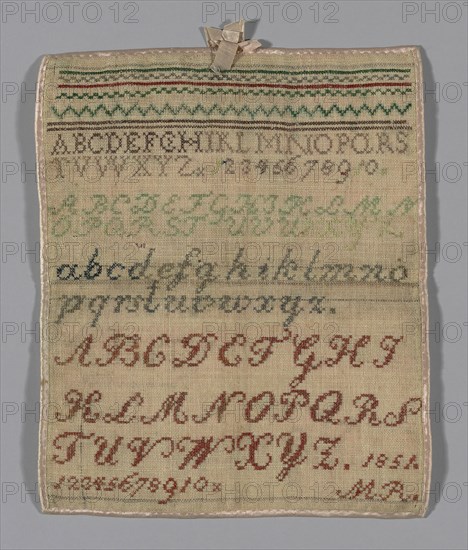 ABCDEFGHIKLMNOPQRS
TVWXYZx 1234567890.
ABCDEFGHIKLMN
OPQRSTUVW
abcdefghiklmno
pqrstuvwxyz.
ABCDEFGHI
KLMNOPQRS
TUVWXYZ. 1851.
1234567890x M.R.
PHOTO 12